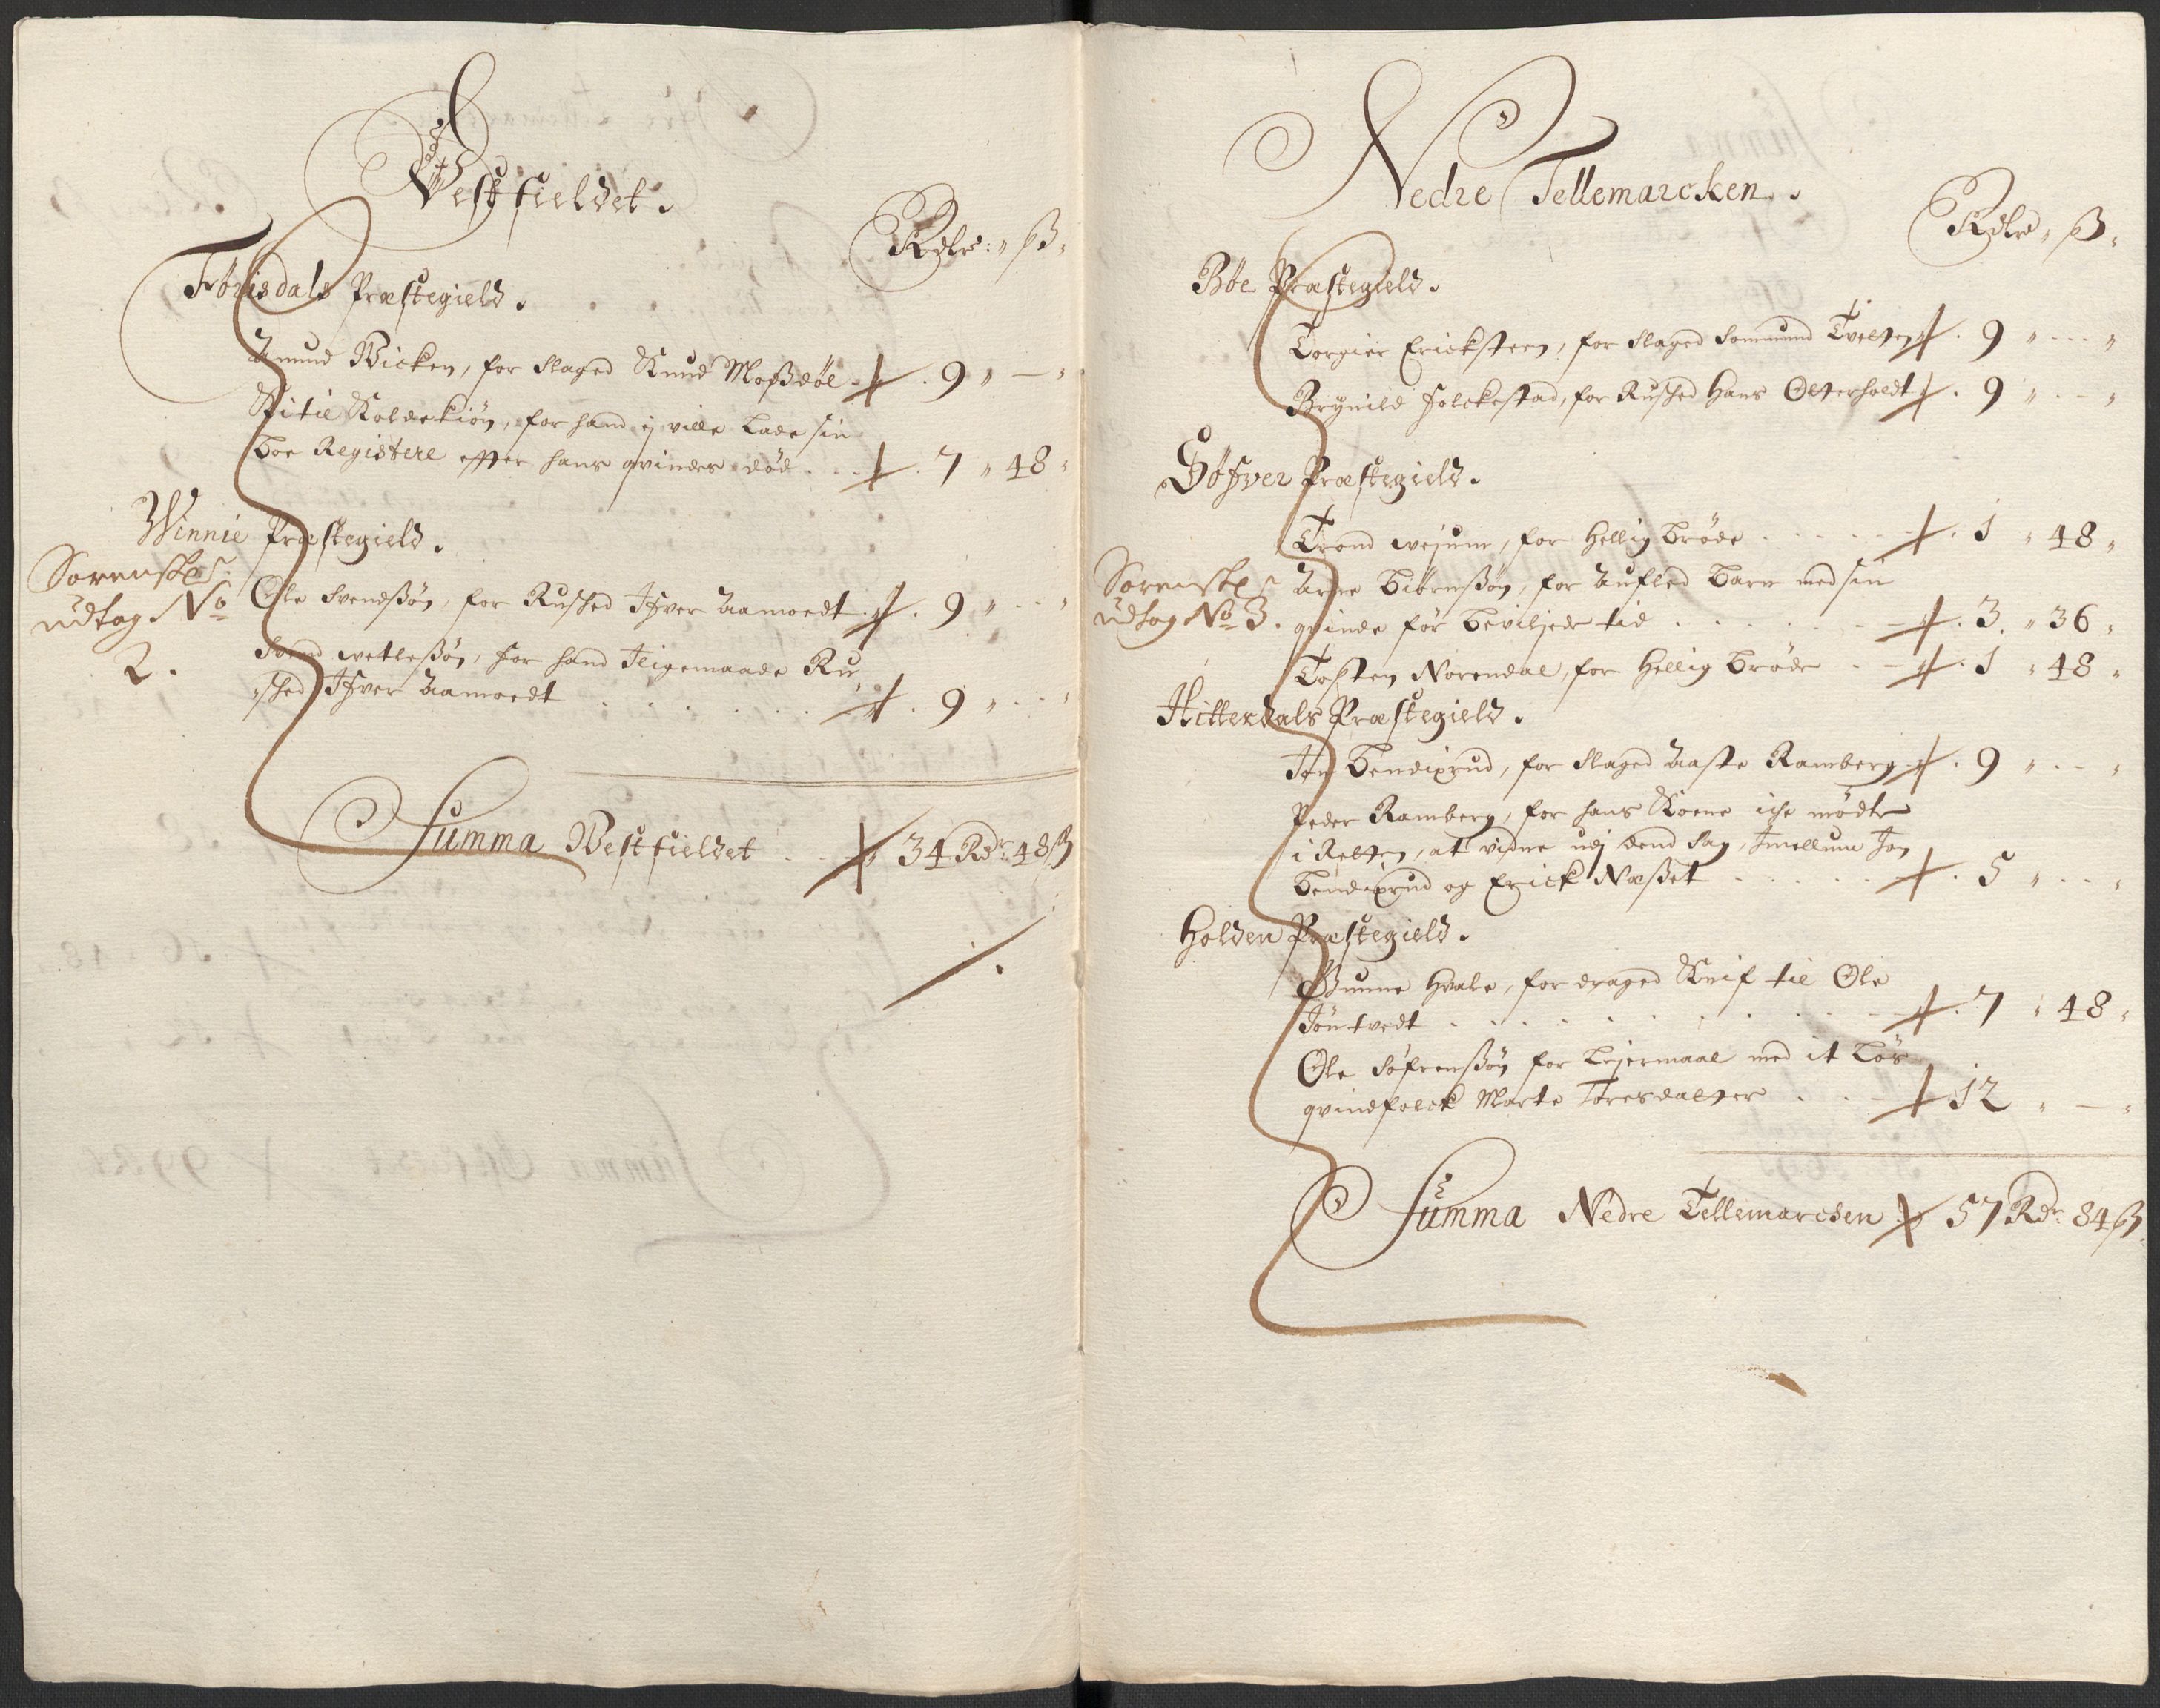 Vestfieldet.
Rdlr: " ß "
Førisdals Præstegield.
Amund Wicken, for slaged Knud Moßdøl . 9 " — "
Kitil Koldekiøn, for hand ej ville Lade sin
boe Registere effter hans qvindes død . . . 7 " 48 "
Winnie Præstegield.
Sorenskr:
udtog No
2.
Ole Svendßøn, for Rusked Ifver Aamoedt . 9 " . . "
Svend wetleßøn, for hand Iligemaade Ru,
"sked Ifver Aamoedt . . . . . . . 9 " . . "
Summa Westfieldet . . . 34 Rdr: 48 ß
Nedre Tellemarcken.
Rdlr " ß "
Bøe Præstegield.
Torgier Ericksteen, for slaged Sommund Tveten . 9 " . . . "
Brynild Folckestad, for Rusked Hans Olterholdt . 9 " . . "
Søfver Præstegield.
Trond , for Hellig brøde . . . . . 1 " 48 "
Sorenskr
udtog No 3.
Arne Biørnßøn, for aufled barn med sin
qvinde før beviljede tid . . . . . . 3. " 36 "
Tosten Norendal, for Hellig brøde . . 1 " 48 "
Hitterdals Præstegield.
Jon Bendixrud, for slaged Aaste Ramberg . 9 " . . "
Peder Ramberg, for hans Koene iche mødte
i Retten, at vidne udj dend sag, Imellum Jon
Bendixrud og Erick Næßet . . . . . 5 " . . "
Holden Præstegield.
Gunne Hvale, for draged Knif til Ole
Jøntvedt . . . . . . . . . . 7 " 48 "
Ole Søfrenßøn for Lejermaal med it Løs
qvindfolck Marte Toresdatter . . . 12 " — "
Summa Nedre Tellemarcken 57 Rdr: 84 ß